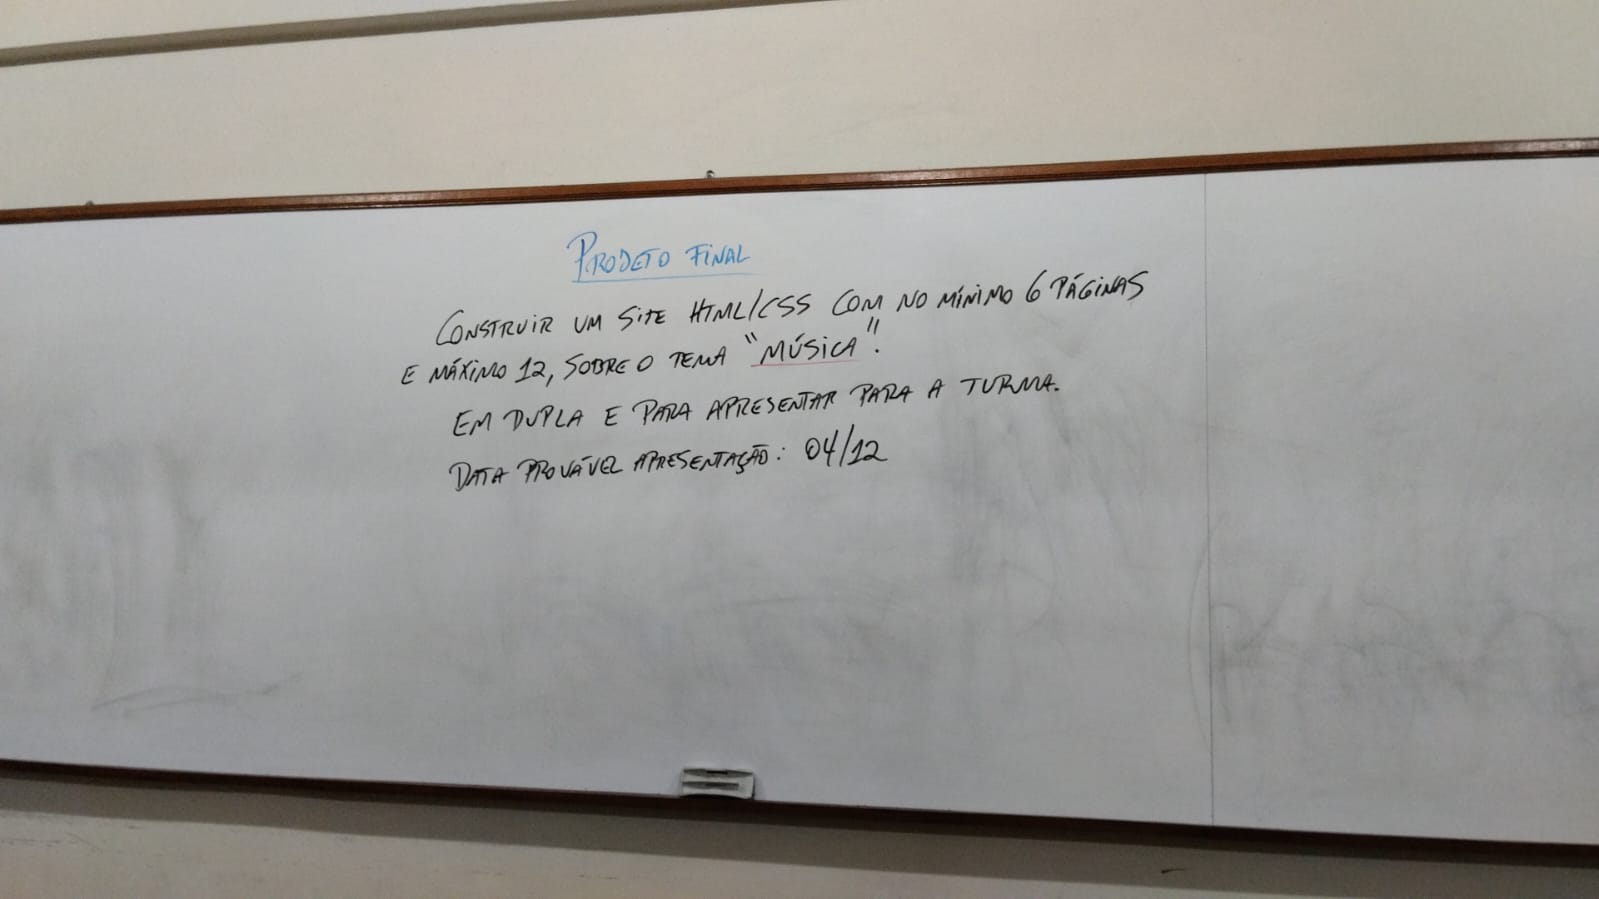 PROJETO FINAL
CONSTRUIR UM SITE HTML/CSS COM NO MÍNIMO 6 PÁGINAS
E MÁXIMO 12, SOBRE O TEMA "MÚSICA".
EM DUPLA E PARA APRESENTAR PARA A TURMA.
DATA PROVÁVEL APRESENTAÇÃO: 04/12